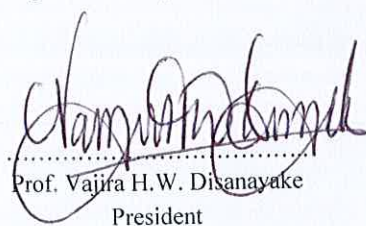 ................................................
Prof. Vajira H.W. Disanayake
President